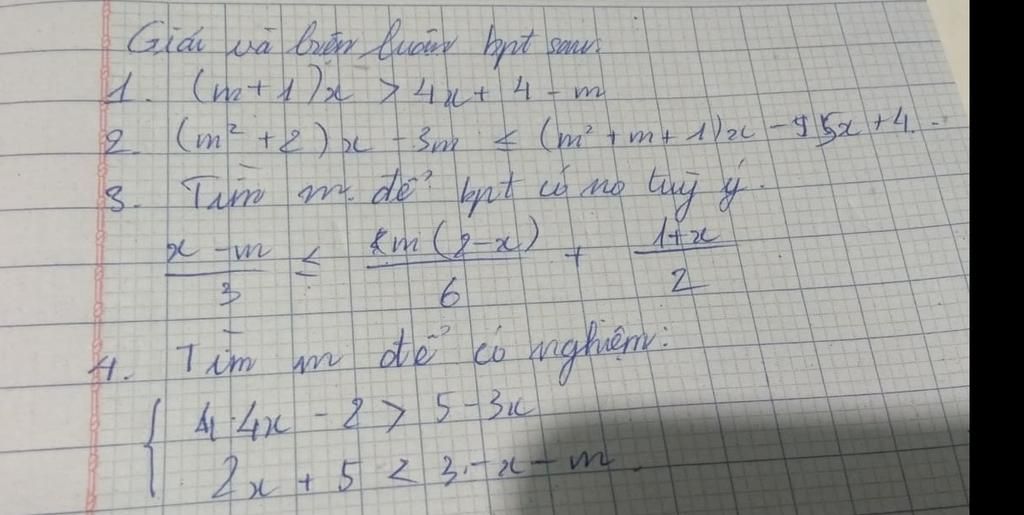 Giải và biện luận bpt sau:
1. (m+1)x > 4x + 4 - m
2. (m² + 2)x - 3m ≤ (m² + m + 1)x - 5x + 4.
3. Tìm m để bpt có no tuỳ ý.
x - m / 3 ≤ m(2-x) / 6 + 1+x / 2
4. Tìm m để có nghiệm:
4x - 2 > 5 - 3x
2x + 5 < 3 - x - m